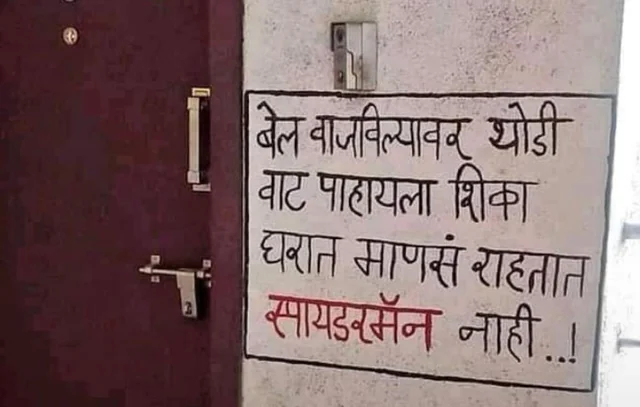 बेल वाजविल्यावर थोडी
वाट पाहायला शिका
घरात माणसं राहतात
स्पायडरमॅन नाही...!